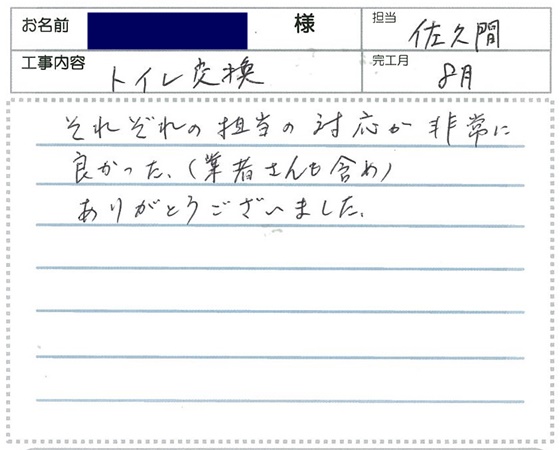 お名前 様 担当 佐久間
工事内容 トイレ交換 完工月 8月
それぞれの担当の対応が非常に
良かった。(業者さんも含め)
ありがとうございました。